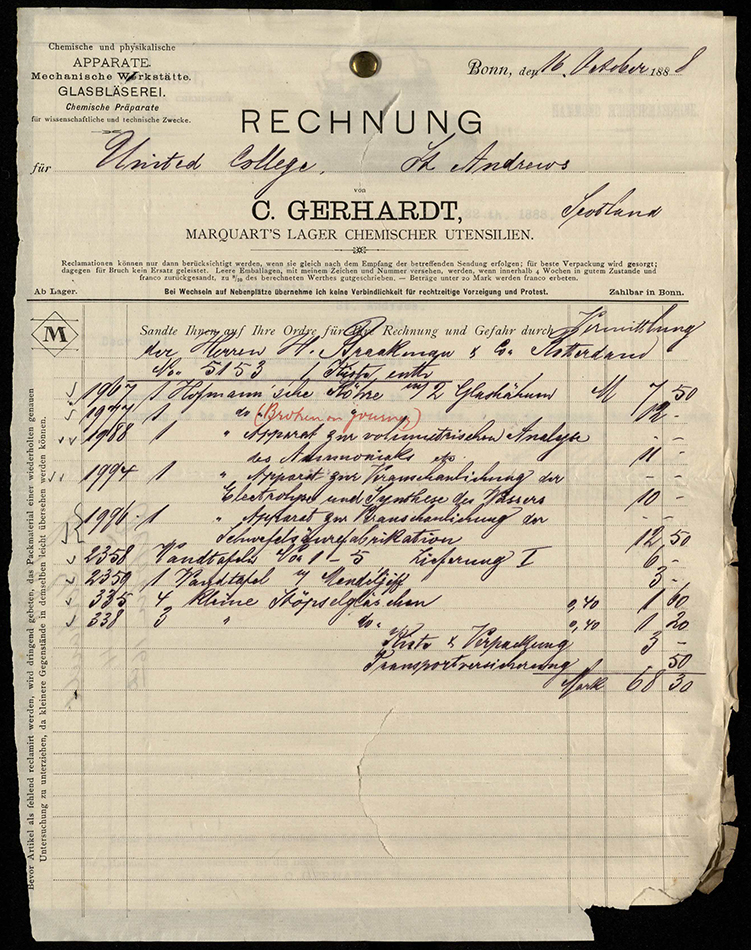 Chemische und physikalische
APPARATE.
Mechanische Werkstätte.
GLASBLÄSEREI.
Chemische Präparate
für wissenschaftliche und technische Zwecke.
Bonn, den 16. October 1888
RECHNUNG
für United College, St Andrews
von
C. GERHARDT, Scotland
MARQUART'S LAGER CHEMISCHER UTENSILIEN.
Reclamationen können nur dann berücksichtigt werden, wenn sie gleich nach dem Empfang der betreffenden Sendung erfolgen; für beste Verpackung wird gesorgt;
dagegen für Bruch kein Ersatz geleistet. Leere Emballagen, mit meinem Zeichen und Nummer versehen, werden, wenn innerhalb 4 Wochen in gutem Zustande und
franco zurückgesandt, zu 9/10 des berechneten Werthes gutgeschrieben. — Beträge unter 20 Mark werden franco erbeten.
Ab Lager. Bei Wechseln auf Nebenplätze übernehme ich keine Verbindlichkeit für rechtzeitige Vorzeigung und Protest. Zahlbar in Bonn.
M
Sandte Ihnen auf Ihre Ordre für Ihre Rechnung und Gefahr durch Vermittlung
der Herren H. Braakman & Co. Rotterdam
No. 5153 1 Kiste enth
1967 1 Hofmann'sche Röhre m/2 Glashähnen M 7 50
1977 1 do (Broken on journey) 12 -
1988 1 " Apparat zur volumetrischen Analyse - -
des Ammoniaks etc. 11 -
1994 1 " Apparat zur Veranschaulichung der - -
Electrolyse und Synthese des Wassers 10 -
1996 1 " Apparat zur Veranschaulichung der - -
Schwefelsäurefabrikation 12 50
2358 Wandtafeln No 1-5 Lieferung I 6 -
2359 1 Wandtafel n/ Mendeljeff 3 -
335 4 kleine Stöpselgläschen 0,40 1 60
338 3 " do 0,40 1 20
Kiste & Verpackung 3 -
Transportversicherung 50
Mark 68 30
Bevor Artikel als fehlend reclamirt werden, wird dringend gebeten, das Packmaterial einer wiederholten genauen
Untersuchung zu unterziehen, da kleinere Gegenstände in demselben leicht übersehen werden können.